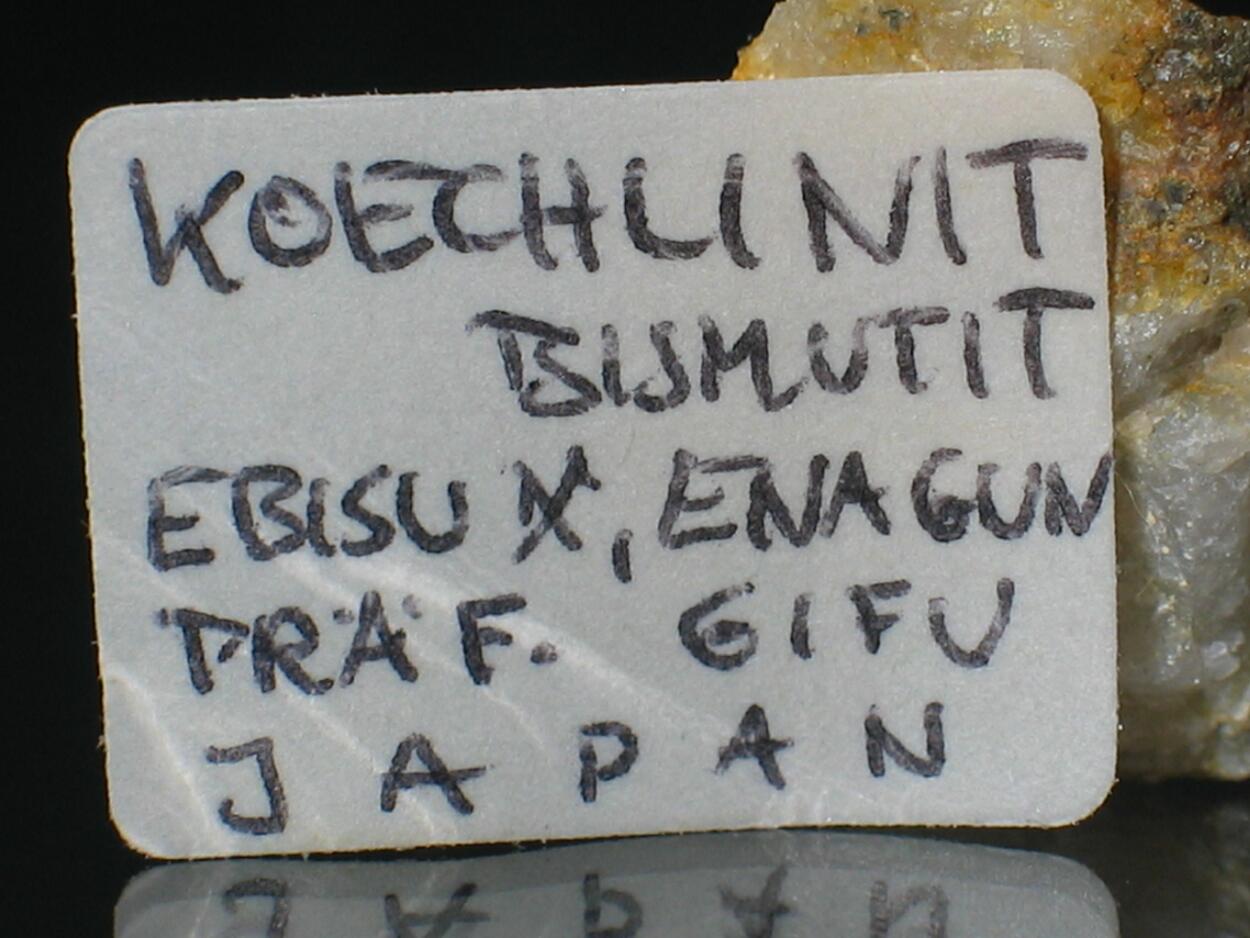 KOECHLINIT
BISMUTIT
EBISU ⚒, ENAGUN
PRÄF. GIFU
JAPAN